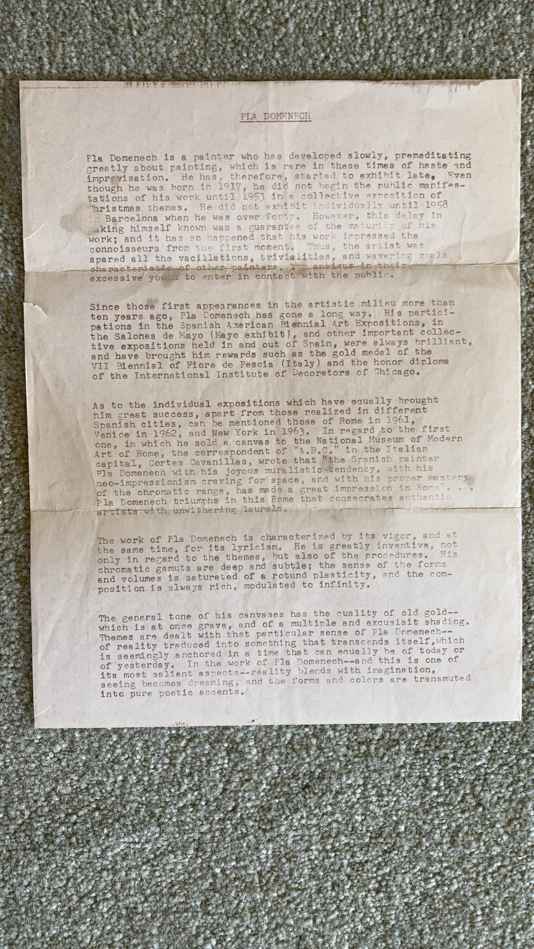 PLA DOMENECH
Pla Domenech is a painter who has developed slowly, premeditating
greatly about painting, which is rare in these times of haste and
improvisation. He has, therefore, started to exhibit late. Even
though he was born in 1917, he did not begin the public manifes-
tations of his work until 1953 in a collective exposition of
Christmas themes. He did not exhibit individually until 1958
in Barcelona when he was over forty. However, this delay in
making himself known was a guarantee of the maturity of his
work; and it has so happened that his work impressed the
connoisseurs from the first moment. Thus, the artist was
spared all the vacillations, trivialities, and wavering
characteristic of other painters, in their
excessive youth to enter in contact with the public.
Since those first appearances in the artistic milieu more than
ten years ago, Pla Domenech has gone a long way. His partici-
pations in the Spanish American Biennial Art Expositions, in
the Salones de Mayo (Mayo exhibit), and other important collec-
tive expositions held in and out of Spain, were always brilliant,
and have brought him rewards such as the gold medal of the
VII Biennial of Fiore de Pescia (Italy) and the honor diploma
of the International Institute of Decorators of Chicago.
As to the individual expositions which have equally brought
him great success, apart from those realized in different
Spanish cities, can be mentioned those of Rome in 1961,
Venice in 1962, and New York in 1963. In regard to the first
one, in which he sold a canvas to the National Museum of Modern
Art of Rome, the correspondent of "A.B.C." in the Italian
capital, Cortes Cavanillas, wrote that "the Spanish painter
Pla Domenech with his joyous muralistic tendency, with his
neo-impressionism craving for space, and with his proper mastery
of the chromatic range, has made a great impression in Rome . . .
Pla Domenech triumphs in this Rome that consecrates authentic
artists with unwithering laurels.
The work of Pla Domenech is characterized by its vigor, and at
the same time, for its lyricism. He is greatly inventive, not
only in regard to the themes, but also of the procedures. His
chromatic gamuts are deep and subtle; the sense of the forms
and volumes is saturated of a rotund plasticity, and the com-
position is always rich, modulated to infinity.
The general tone of his canvases has the quality of old gold--
which is at once grave, and of a multiple and exquisit shading.
Themes are dealt with that particular sense of Pla Domenech--
of reality traduced into something that transcends itself, which
is seemingly anchored in a time that can equally be of today or
of yesterday. In the work of Pla Domenech--and this is one of
its most salient aspects--reality blends with imagination,
seeing becomes dreaming, and the forms and colors are transmuted
into pure poetic accents.